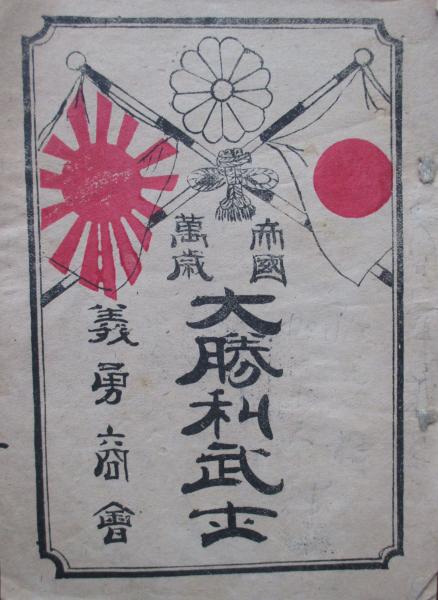 帝國
萬歳
大勝利武士
義勇商會